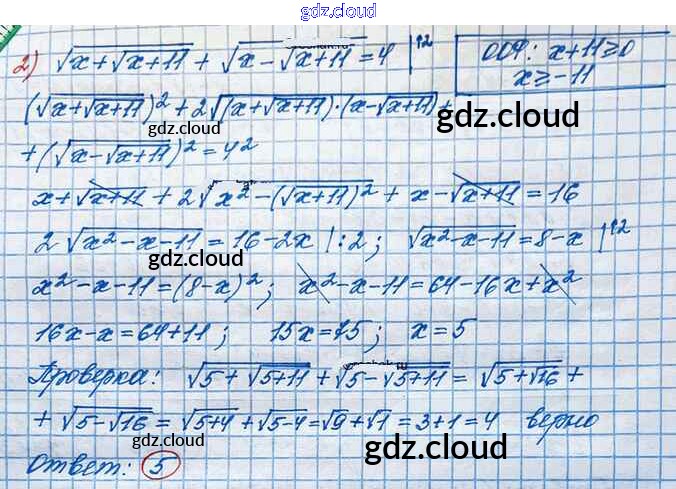 gdz.cloud
2) √(x+√(x+11)) + √(x-√(x+11)) = 4 |↑2
ОДЗ: x+11≥0
x≥-11
(√(x+√(x+11)))² + 2√((x+√(x+11))·(x-√(x+11))) +
gdz.cloud gdz.cloud
+(√(x-√(x+11)))² = 4²
x+√(x+11) + 2√(x²-(√(x+11))²) + x-√(x+11) = 16
gdz.cloud
2√(x²-x-11) = 16-2x |:2; √(x²-x-11) = 8-x |↑2
gdz.cloud gdz.cloud
x²-x-11=(8-x)²; x²-x-11=64-16x+x²
16x-x=64+11; 15x=75; x=5
gdz.cloud
Проверка: √(5+√(5+11)) + √(5-√(5+11)) = √(5+√16) +
gdz.cloud
+ √(5-√16) = √(5+4) + √(5-4) = √9+√1 = 3+1=4 верно
gdz.cloud
Ответ: 5
gdz.cloud